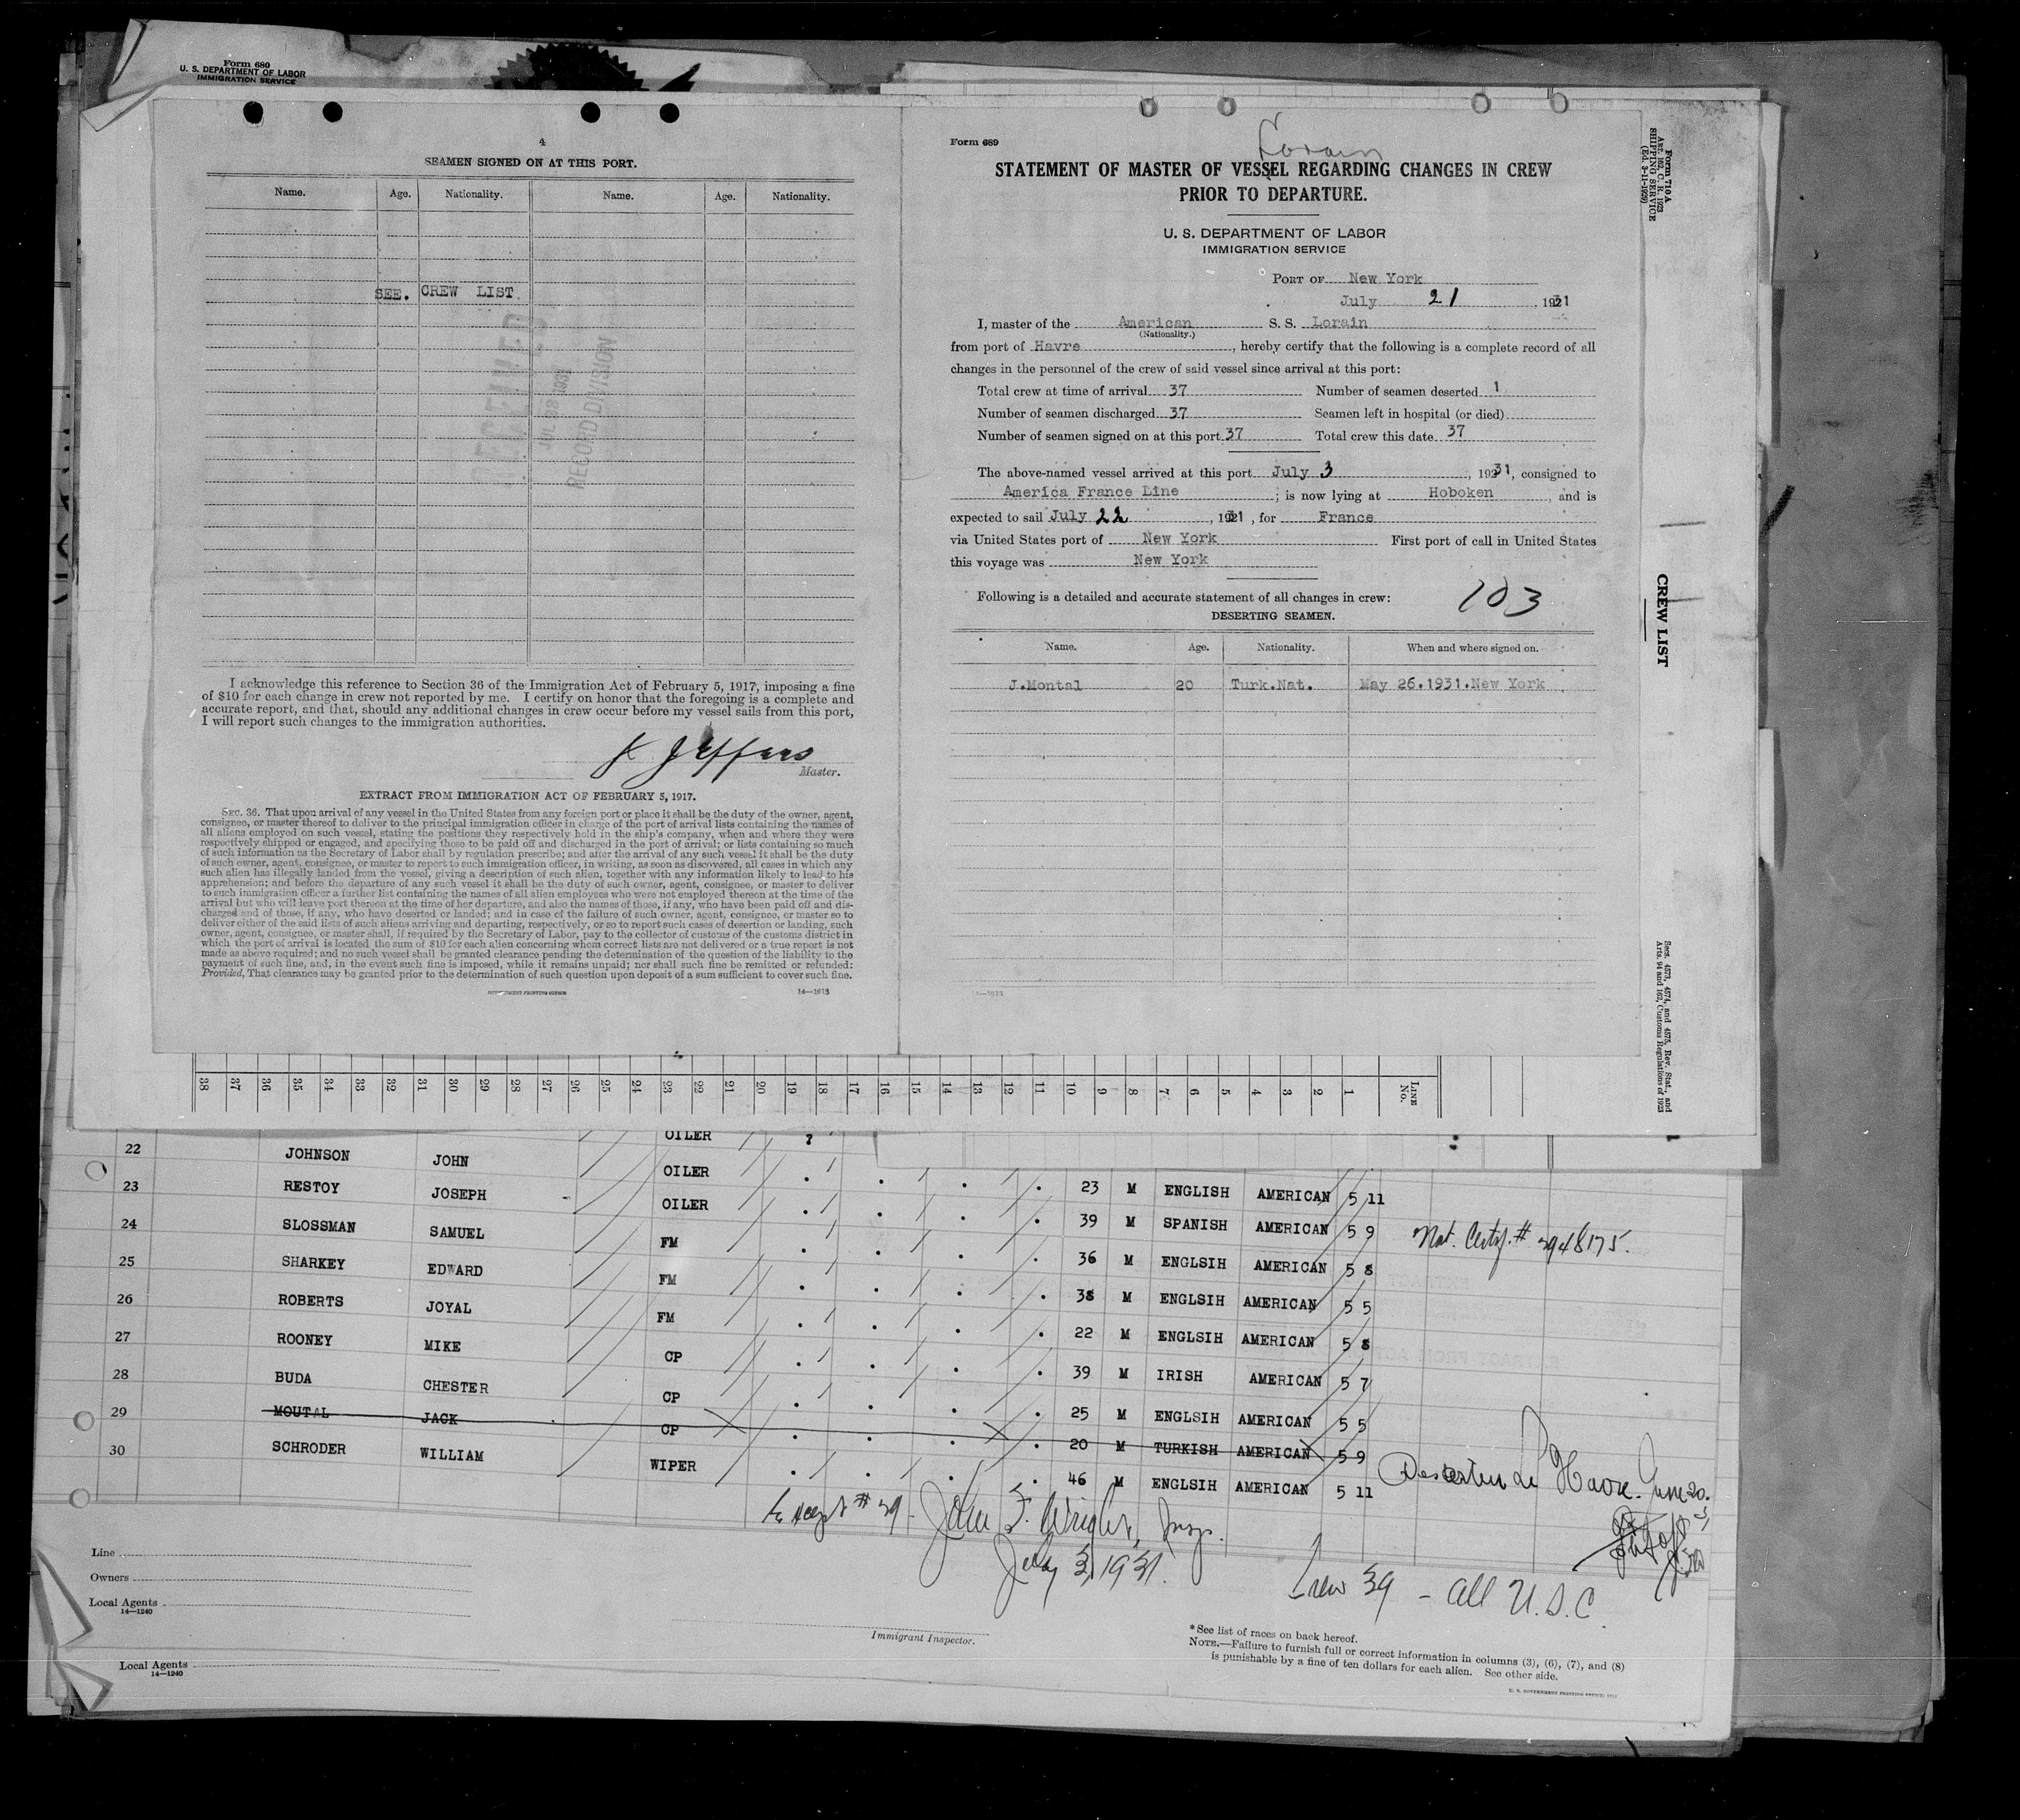 Form 680
U. S. DEPARTMENT OF LABOR
IMMIGRATION SERVICE
4
SEAMEN SIGNED ON AT THIS PORT.
Name. Age. Nationality. Name. Age. Nationality.
SEE. CREW LIST.
RECEIVED
JUL 23 1931
RECORD DIVISION
I acknowledge this reference to Section 36 of the Immigration Act of February 5, 1917, imposing a fine
of $10 for each change in crew not reported by me. I certify on honor that the foregoing is a complete and
accurate report, and that, should any additional changes in crew occur before my vessel sails from this port,
I will report such changes to the immigration authorities.
Jeffers
Master.
EXTRACT FROM IMMIGRATION ACT OF FEBRUARY 5, 1917.
SEC. 36. That upon arrival of any vessel in the United States from any foreign port or place it shall be the duty of the owner, agent,
consignee, or master thereof to deliver to the principal immigration officer in charge of the port of arrival lists containing the names of
all aliens employed on such vessel, stating the positions they respectively hold in the ship's company, when and where they were
respectively shipped or engaged, and specifying those to be paid off and discharged in the port of arrival; or lists containing so much
of such information as the Secretary of Labor shall by regulation prescribe; and after the arrival of any such vessel it shall be the duty
of such owner, agent, consignee, or master to report to such immigration officer, in writing, as soon as discovered, all cases in which any
such alien has illegally landed from the vessel, giving a description of such alien, together with any information likely to lead to his
apprehension; and before the departure of any such vessel it shall be the duty of such owner, agent, consignee, or master to deliver
to such immigration officer a further list containing the names of all alien employees who were not employed thereon at the time of the
arrival but who will leave port thereon at the time of her departure, and also the names of those, if any, who have been paid off and dis-
charged and of those, if any, who have deserted or landed; and in case of the failure of such owner, agent, consignee, or master so to
deliver either of the said lists of such aliens arriving and departing, respectively, or so to report such cases of desertion or landing, such
owner, agent, consignee, or master shall, if required by the Secretary of Labor, pay to the collector of customs of the customs district in
which the port of arrival is located the sum of $10 for each alien concerning whom correct lists are not delivered or a true report is not
made as above required; and no such vessel shall be granted clearance pending the determination of the question of the liability to the
payment of such fine, and, in the event such fine is imposed, while it remains unpaid; nor shall such fine be remitted or refunded:
Provided, That clearance may be granted prior to the determination of such question upon deposit of a sum sufficient to cover such fine.
GOVERNMENT PRINTING OFFICE 14—1613
Form 689
Lorain
STATEMENT OF MASTER OF VESSEL REGARDING CHANGES IN CREW
PRIOR TO DEPARTURE.
U. S. DEPARTMENT OF LABOR
IMMIGRATION SERVICE
PORT OF New York
July 21, 1931
I, master of the American S. S. Lorain
(Nationality.)
from port of Havre, hereby certify that the following is a complete record of all
changes in the personnel of the crew of said vessel since arrival at this port:
Total crew at time of arrival 37 Number of seamen deserted 1
Number of seamen discharged 37 Seamen left in hospital (or died)
Number of seamen signed on at this port 37 Total crew this date 37
The above-named vessel arrived at this port July 3, 1931, consigned to
America France Line; is now lying at Hoboken, and is
expected to sail July 22, 1931, for France
via United States port of New York First port of call in United States
this voyage was New York
Following is a detailed and accurate statement of all changes in crew: 103
DESERTING SEAMEN.
Name. Age. Nationality. When and where signed on.
J.Montal 20 Turk.Nat. May 26.1931.New York
14—1613
Form 710 A
Art. 162, C. R. 1923
SHIPPING SERVICE
(Ed. 3-11-1929)
CREW LIST
Secs. 4573, 4574, and 4575, Rev. Stat., and
Arts. 94 and 162, Customs Regulations of 1923
38 37 36 35 34 33 32 31 30 29 28 27 26 25 24 23 22 21 20 19 18 17 16 15 14 13 12 11 10 9 8 7 6 5 4 3 2 1 LINE No.
OILER
22 JOHNSON JOHN OILER 23 M ENGLISH AMERICAN 5 11
23 RESTOY JOSEPH OILER 39 M SPANISH AMERICAN 5 9 Nat. Certif. # 3948175.
24 SLOSSMAN SAMUEL FM 36 M ENGLSIH AMERICAN 5 8
25 SHARKEY EDWARD FM 38 M ENGLSIH AMERICAN 5 5
26 ROBERTS JOYAL FM 22 M ENGLSIH AMERICAN 5 8
27 ROONEY MIKE CP 39 M IRISH AMERICAN 5 7
28 BUDA CHESTER CP 25 M ENGLSIH AMERICAN 5 5
29 MOUTAL JACK CP 20 M TURKISH AMERICAN 5 9 Havre. June 20.
30 SCHRODER WILLIAM WIPER 46 M ENGLSIH AMERICAN 5 11
# 29 - John F. Wright, Insp.
July 3, 1931.
Crew 39 - all U.S.C.
Line
Owners
Local Agents
14—1240
Immigrant Inspector.
*See list of races on back hereof.
NOTE.—Failure to furnish full or correct information in columns (3), (6), (7), and (8)
is punishable by a fine of ten dollars for each alien. See other side.
Local Agents
14—1240